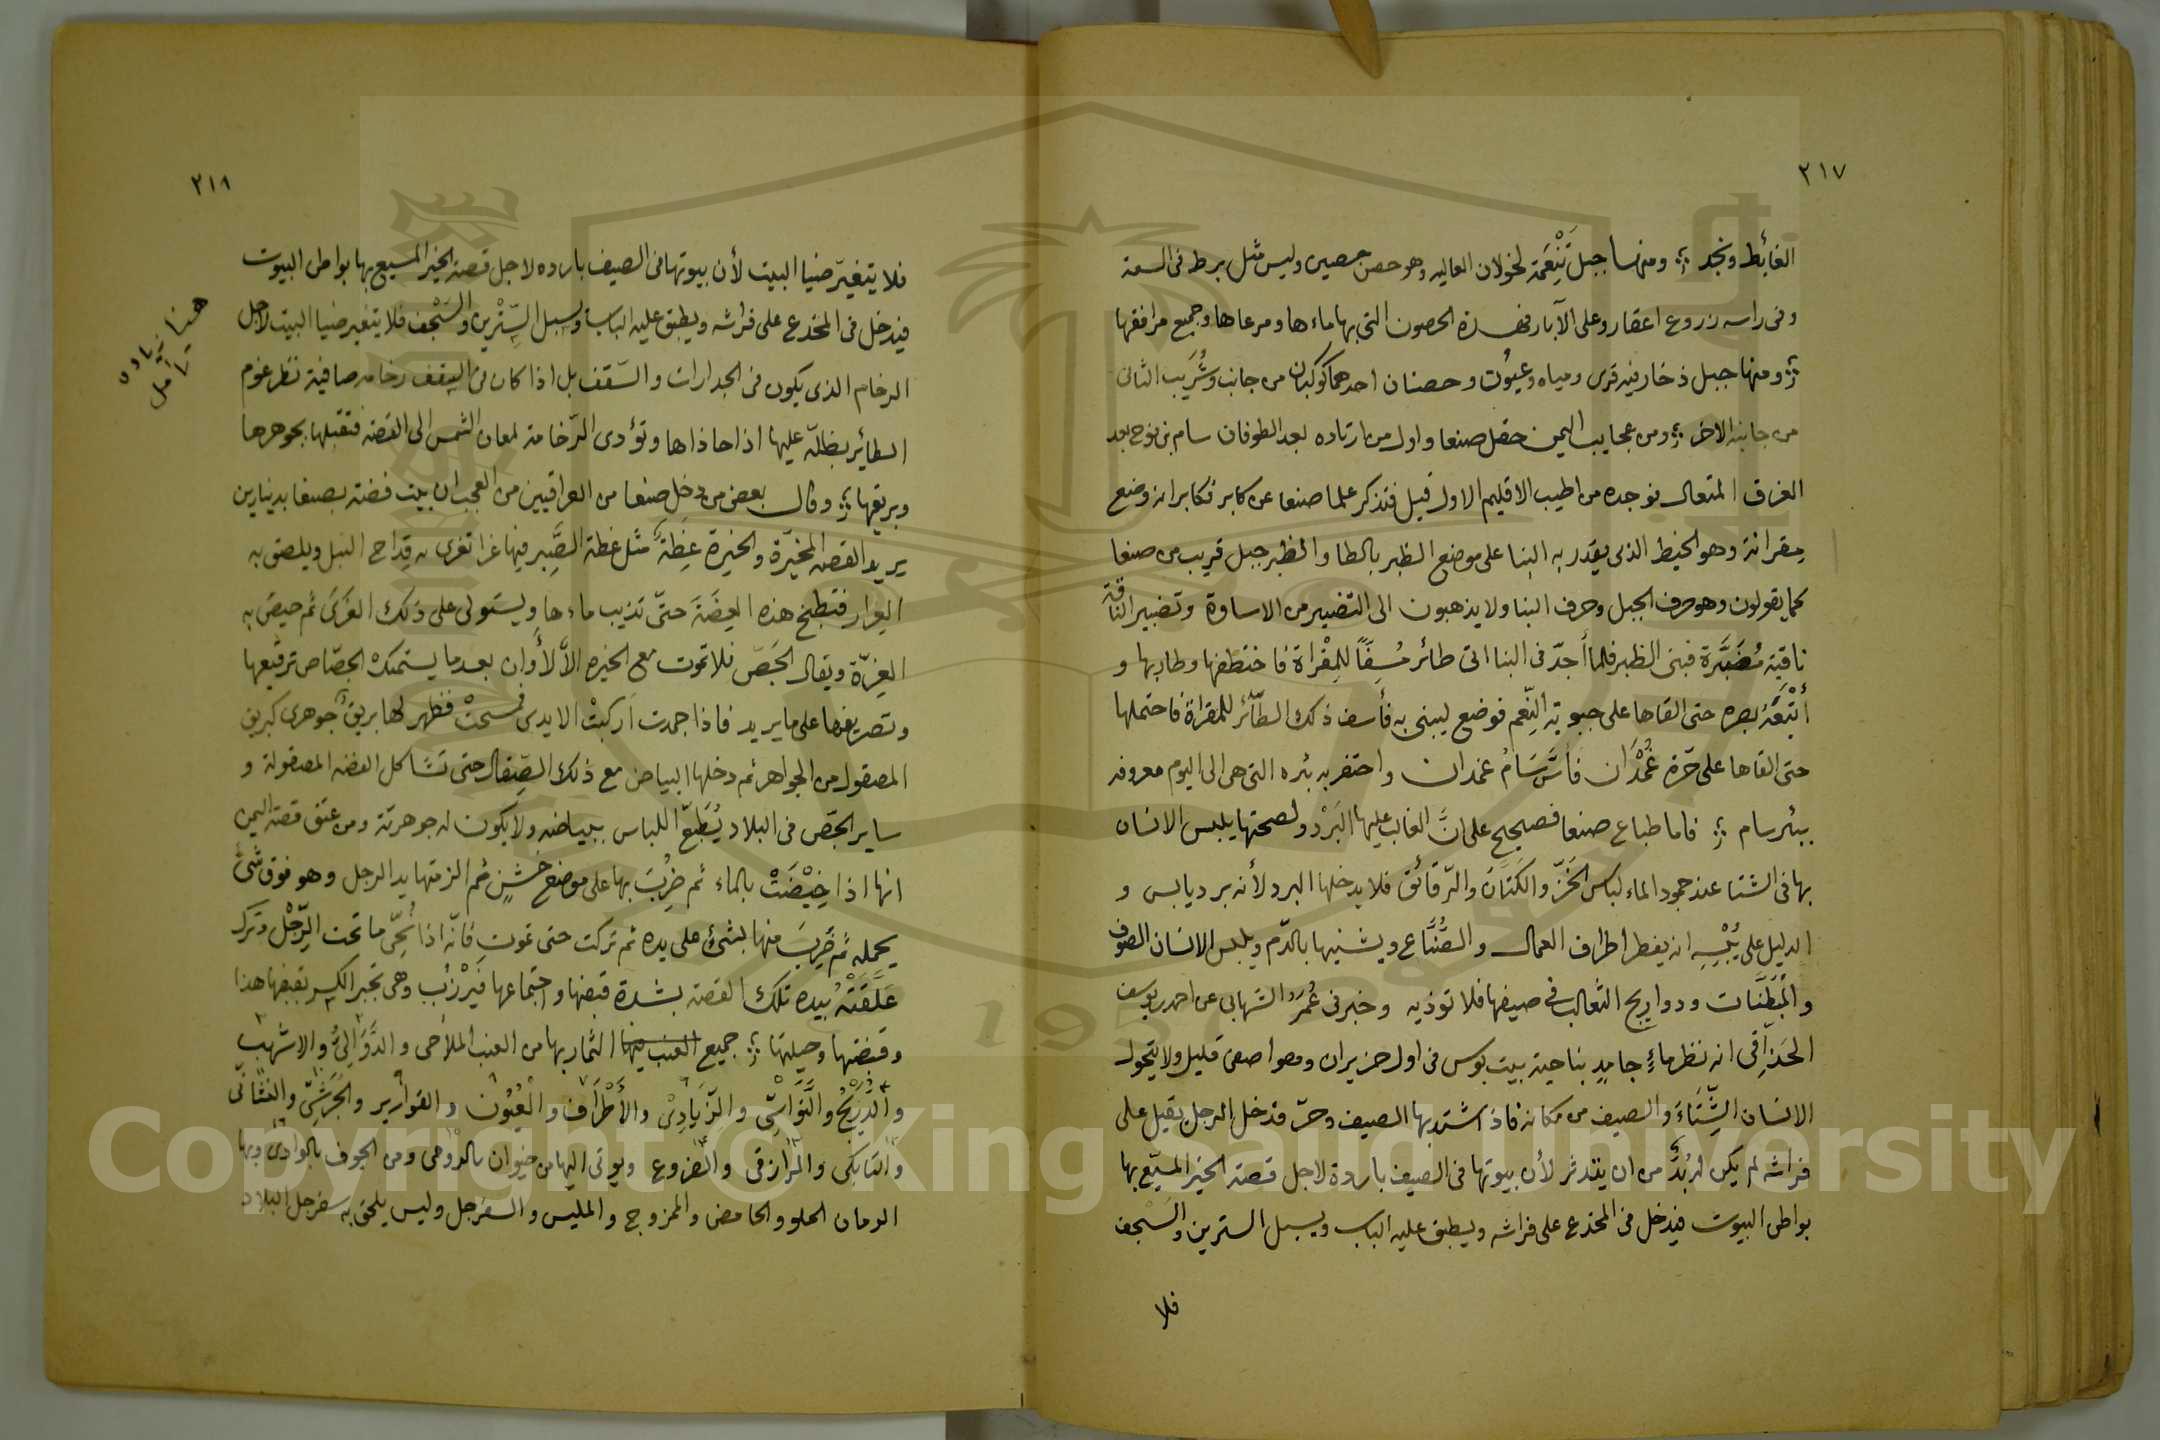 ٢١٧
الغائط ونجد ومنها جبل تَنْعِمَة لخولان العاليه وهو حصن حصين وليس مثل برط فى السعة
وفى راسه زروع اعقار وعلى الآبار فهذه الحصون التى بها ماءها ومرعاها وجميع مرافقها
ومنها جبل ذخار فيه قرى ومياه وعيوُن وحصنان احدهما كوكبان من جانب وشُرَيب الثانى
من جانبه الاخر ومن عجايب اليمن حقل صنعا واول من ارتاده بعد الطوفان سام بن نوح بعد
الغرق المتعال فوجده من اطيب الاقليم الاول قيل فتذكر علما صنعا عن كابر فكابر انه وضع
مقرانة وهو الخيط الذى يقدر به البنا على موضع الظبر بالطا والظبر جبل قريب من صنعا
كما يقولون وهو حرف الجبل وحرف البنا ولا يذهبون الى التضيير من الاساوة وتضبير الناقة
ناقة مُضَبَّرة فبنى الظبر فلما أجدّ فى البنا اتى طائر مُسِفًّا للمِقْراة فاختطفها وطار بها و
أتْبَعَهُ بصره حتى القاها على جبوبة النِّعم فوضع ليبنى به فأسف ذلك الطّائر للمقراة فاحتملها
حتى القاها على حرّة غُمْدَان فأسَّ سَامُ غمدان واحتفر به بئره التى هى الى اليوم معروفه
ببئر سام فاما طباع صنعا فصحيح على انَّ الغالب عليها البَرْد ولصحتها يلبس الانسان
بها فى الشتا عند جمود الماء لباس الخَزّ والكَتّان والرّقائق فلا يدخلها البرد لأنه برد يابس و
الدليل على يُبْسِهِ انه يفطر اطراف العمال والصُّنَّاع ويشنيها بالدّم ويلبس الانسان الصوف
والمُبَطَّنَات ودواريج الثعالب فى صيفها فلا توذيه وخبرنى عُمَرُ الشهابى عن احمد بن يوسف
الحَذَّاقى انه نظر ماءٍ جامدٍ بناحية بيت بوس فى اول حزيران وهواصعى قليل ولا يتحول
الانسان الشِّتَاءَ والصيف من مكانه فاذ اشتد بها الصيف وحرّ فدخل الرجل يقيل على
فراشه لم يكن له بُدّ من ان يتدثر لأن بيوتها فى الصيف باردة لاجل قصة الخير المسيّع بها
بواطن البيوت فيدخل فى المخدع على فراشه ويطبق عليه الباب ويسبل السترين والسَّجف
فلا
٢١٨
فلا يتغيّر ضيا البيت لأن بيوتها فى الصيف بارده لاجل قصة الخير المسيع بها بواطن البيوت
فيدخل فى المخدع على فراشه ويطبق عليه الباب ويسبل السِّتْرين والسَّجْف فلا يتغير ضيا البيت لاجل
الرخام الذى يكون فى الجدارات والسّقف بل اذا كان فى السقف رخامه صافية نظر غوم
الطائر بظلّه عليها اذا حاذاها وتؤدى الرّخامة لمعان الشمس الى القصة فتقبلها بجوهرها
وبريقها وقال بعض من دخل صنعا من العراقيين من العجب ان بيت فضة بصنعا بدينارين
يريد القصه المخيّرة والخيرة غِطَة مثل غطة الصَّبِر فيها غرا تغرى به قداح النبل ويلصق به
العِرار فتطبخ هذه العِضَةَ حتّى تذيب ماءها ويستولى على ذلك الغَرَى ثم حيض به
الغِرّة ويقال الجَصّ فلا تموت مع الخيره الاَّ لأوان بعد ما يستمكن الجصّاص ترقيعها
وتصريفها على ما يريد فاذا جمدت اركبتْ الايدى فمسحتْ فظهر لها بريق جوهرى كبريق
المصقول من الجواهر ثم دخلها البياض مع ذلك الصِّقال حتى تشاكل الفضه المصقولة و
ساير الجصّ فى البلاد يُطَبّع اللباس ببياضه ولا يكون له جوهرية ومن عتق قصة اليمن
انها اذا خِيْضَتْ بالماء ثم ضُرِبَ بها على موضع خَشِنٍ ثم الزمتها يد الرجل وهو فوق شئ
يحمله ثم ضُرِبَ منها بشئ على يده ثم تركت حتى تموت فانّه اذا نُحِّى ما تحت الرِّجْل وترك
عَلَّقَتْهُ بيده تلك القصة بشدة قبضها واجتماعها فيَرْزُب وهى تجبر الكسر بقبضها هذا
وقبضتها وحيلتها جميع العنب منها الثمار بها من العنب الملاحى والدَّوَالِىّ والاشهب
والدُّرْبُحُ والنَّوَاسِى والزِّيَادِىْ والأطْرَاف والْعُيُوْن والقوارير والجُرَشِىّ والنشانى
والتابكى والرازقى والضروع ويوتى اليها من خيوان بالرومى ومن الجوف بالوادى وبها
الرمان الحلو والحامض والممزوج والمليس والسفرجل وليس يلحق به سفرجل البلاد
هنا زياده
تأمل
Copyright © King Saud University
1957